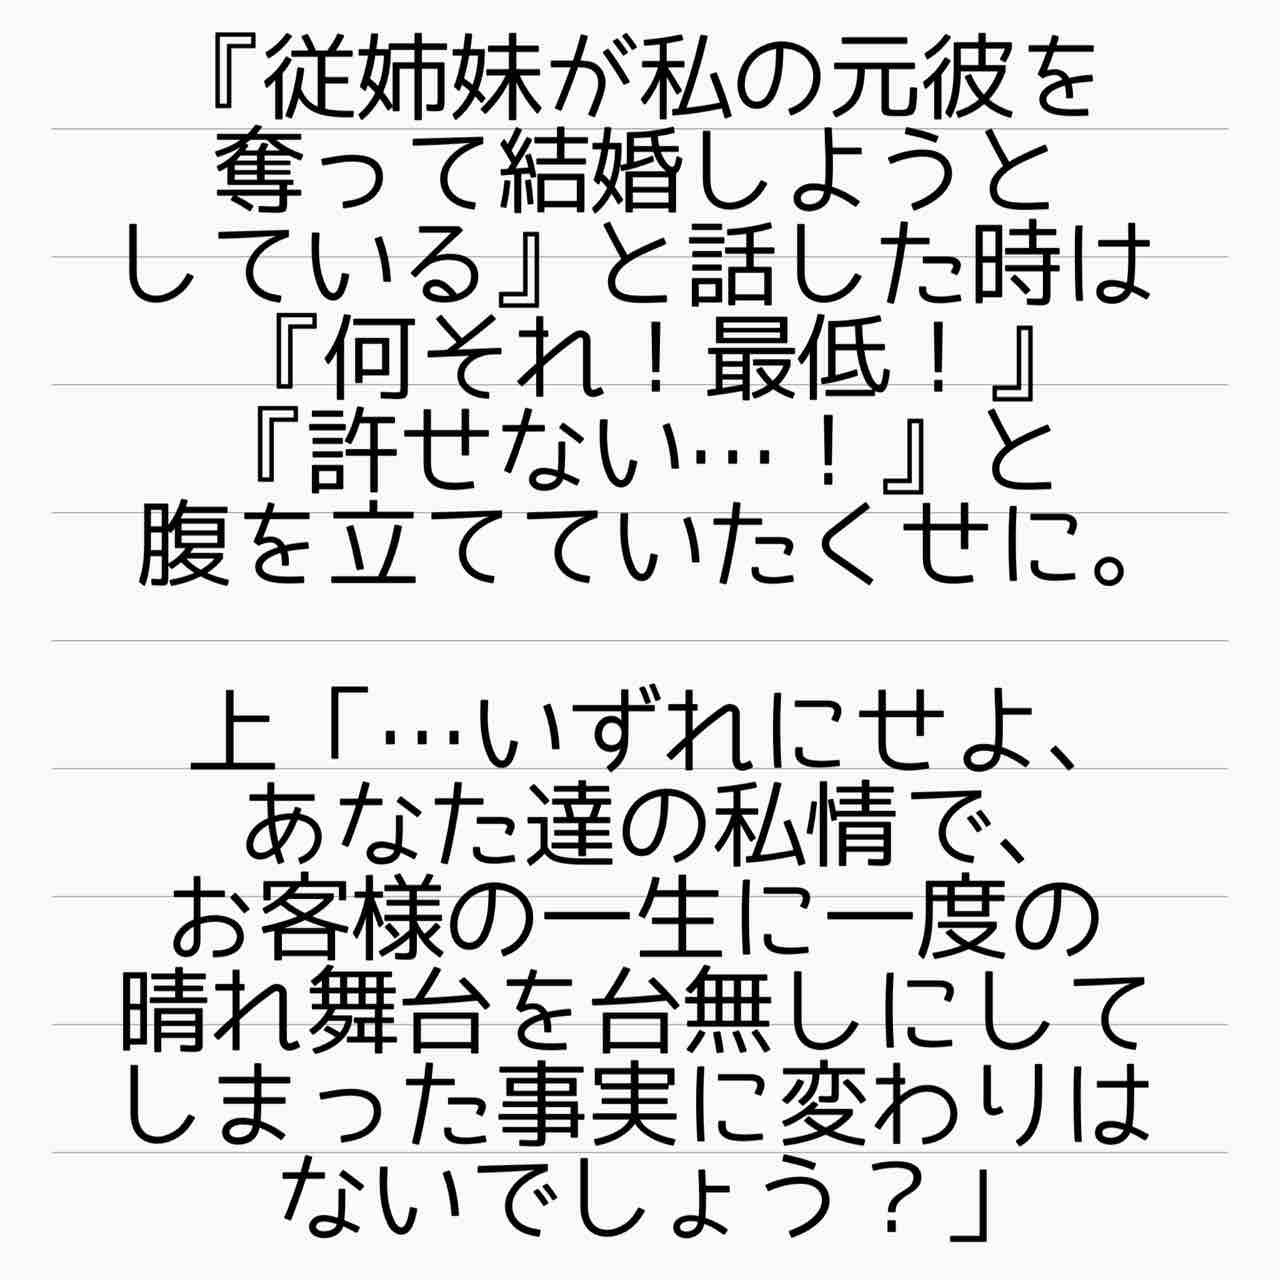 『従姉妹が私の元彼を
奪って結婚しようと
している』と話した時は
『何それ！最低！』
『許せない…！』と
腹を立てていたくせに。
上「…いずれにせよ、
あなた達の私情で、
お客様の一生に一度の
晴れ舞台を台無しにして
しまった事実に変わりは
ないでしょう？」